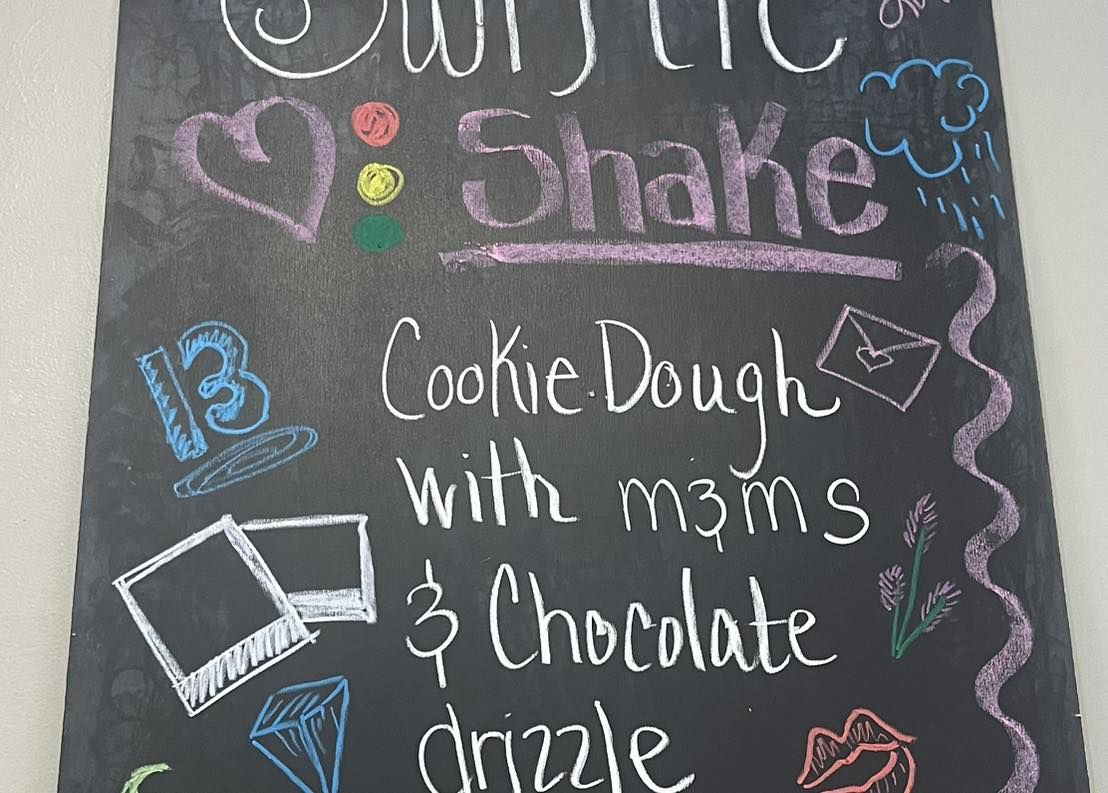 Swiftie
Shake
13
Cookie Dough
with m&ms
& Chocolate
drizzle